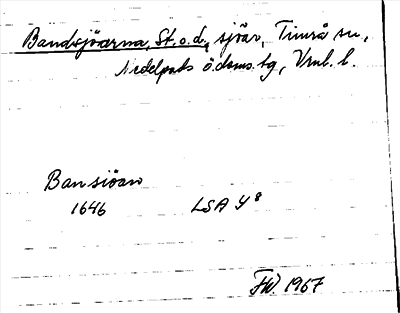 Bandsjöarna, St. o. d., sjöar, Timrå sn,
Medelpads ö. doms. tg, Vrnl. l.
Bansiöar
1646 LSA Y 8
FW. 1967